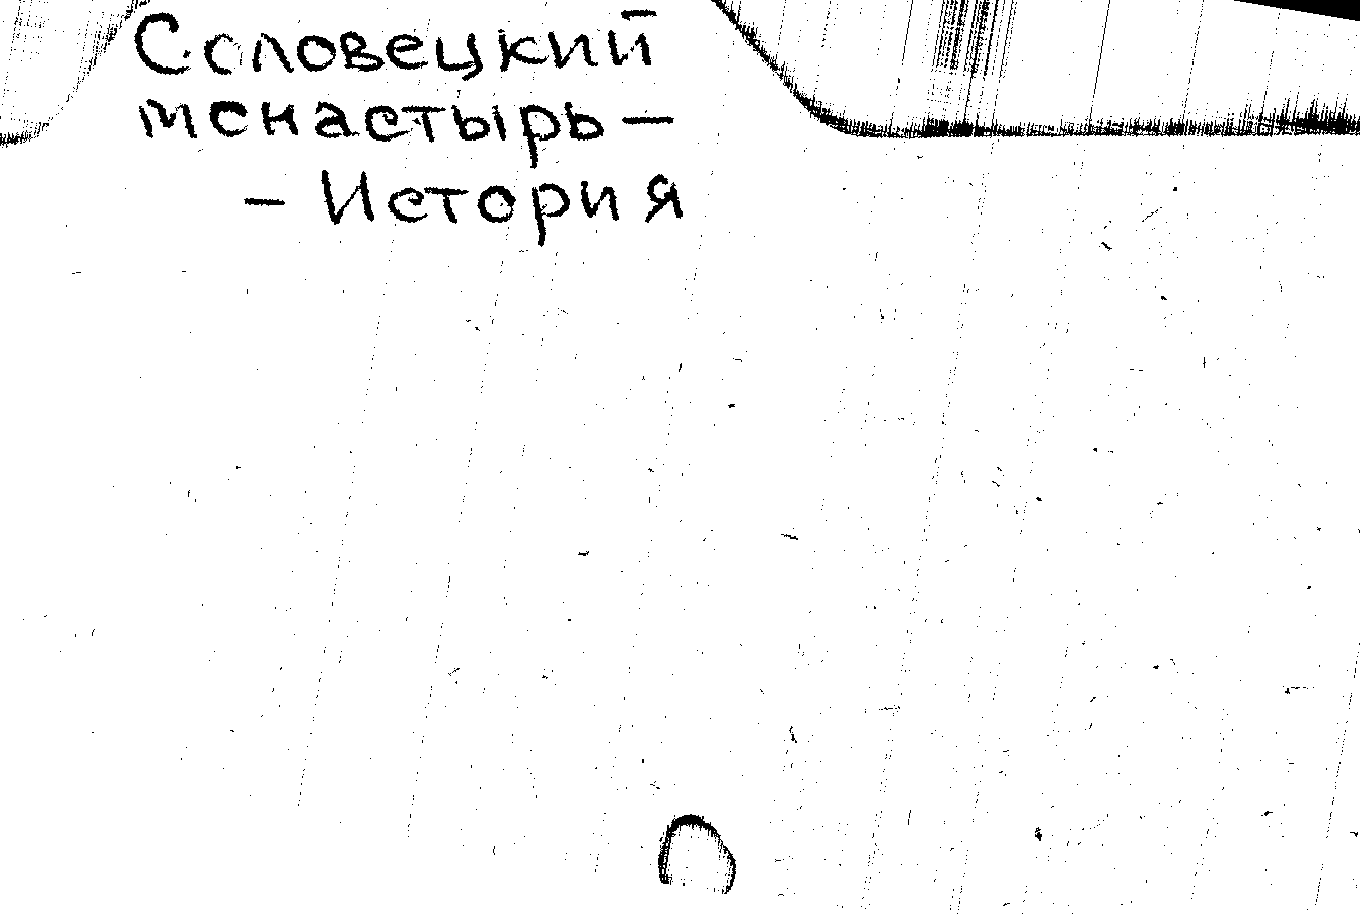 Соловецкий
монастырь —
— История